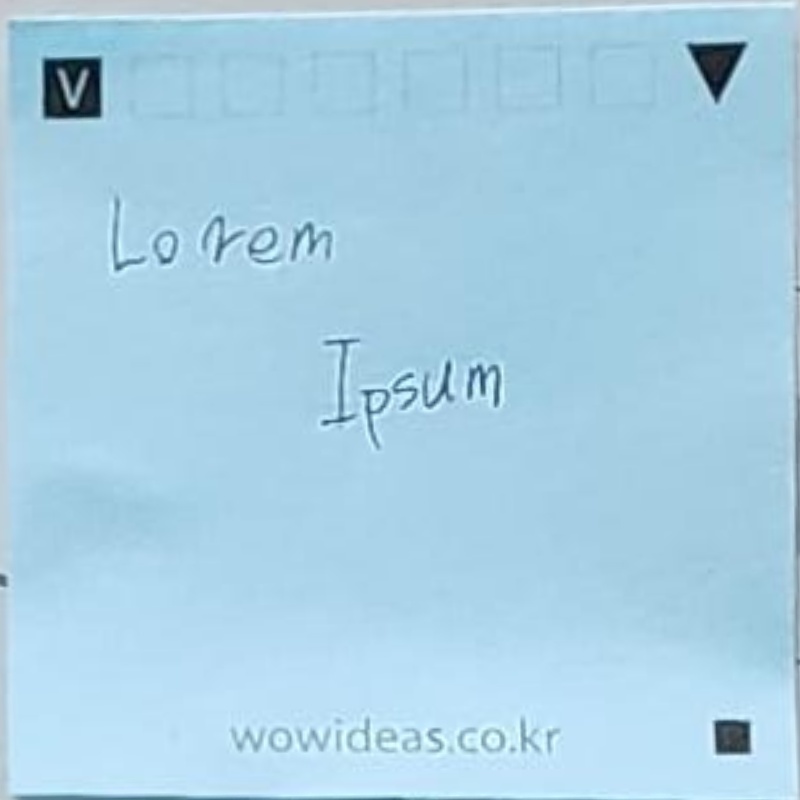 V
Lorem
Ipsum
wowideas.co.kr